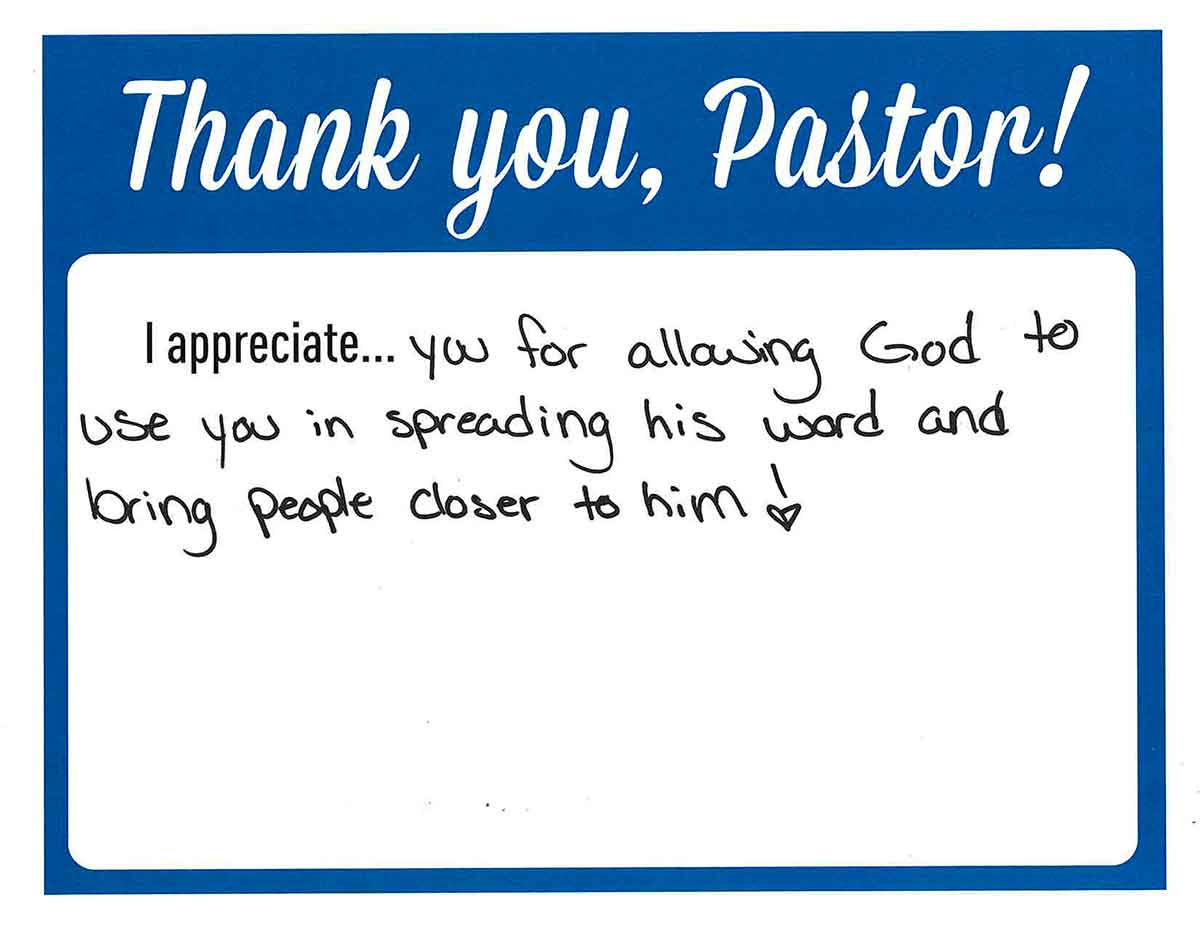 Thank you, Pastor!
I appreciate... you for allowing God to
use you in spreading his word and
bring people closer to him!